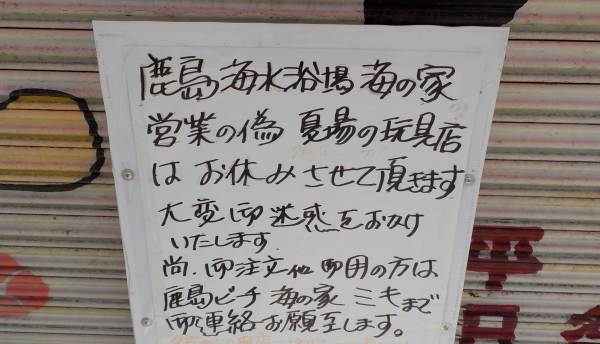 鹿島海水浴場海の家
営業の偽 夏場の玩具店
は お休みさせて頂きます
大変御迷惑をおかけ
いたします.
尚.御注文他 御用の方は
鹿島ビーチ 海の家 ミキまで
御連絡お願至します。
平